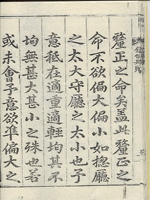 釐正之命矣盖此釐正之
命不欲偏大偏小如揔廳
之太大守廳之太小也予
意秪在適重適輕均其不
均無甚大甚小之殊也若
或未會予意欲準偏大之